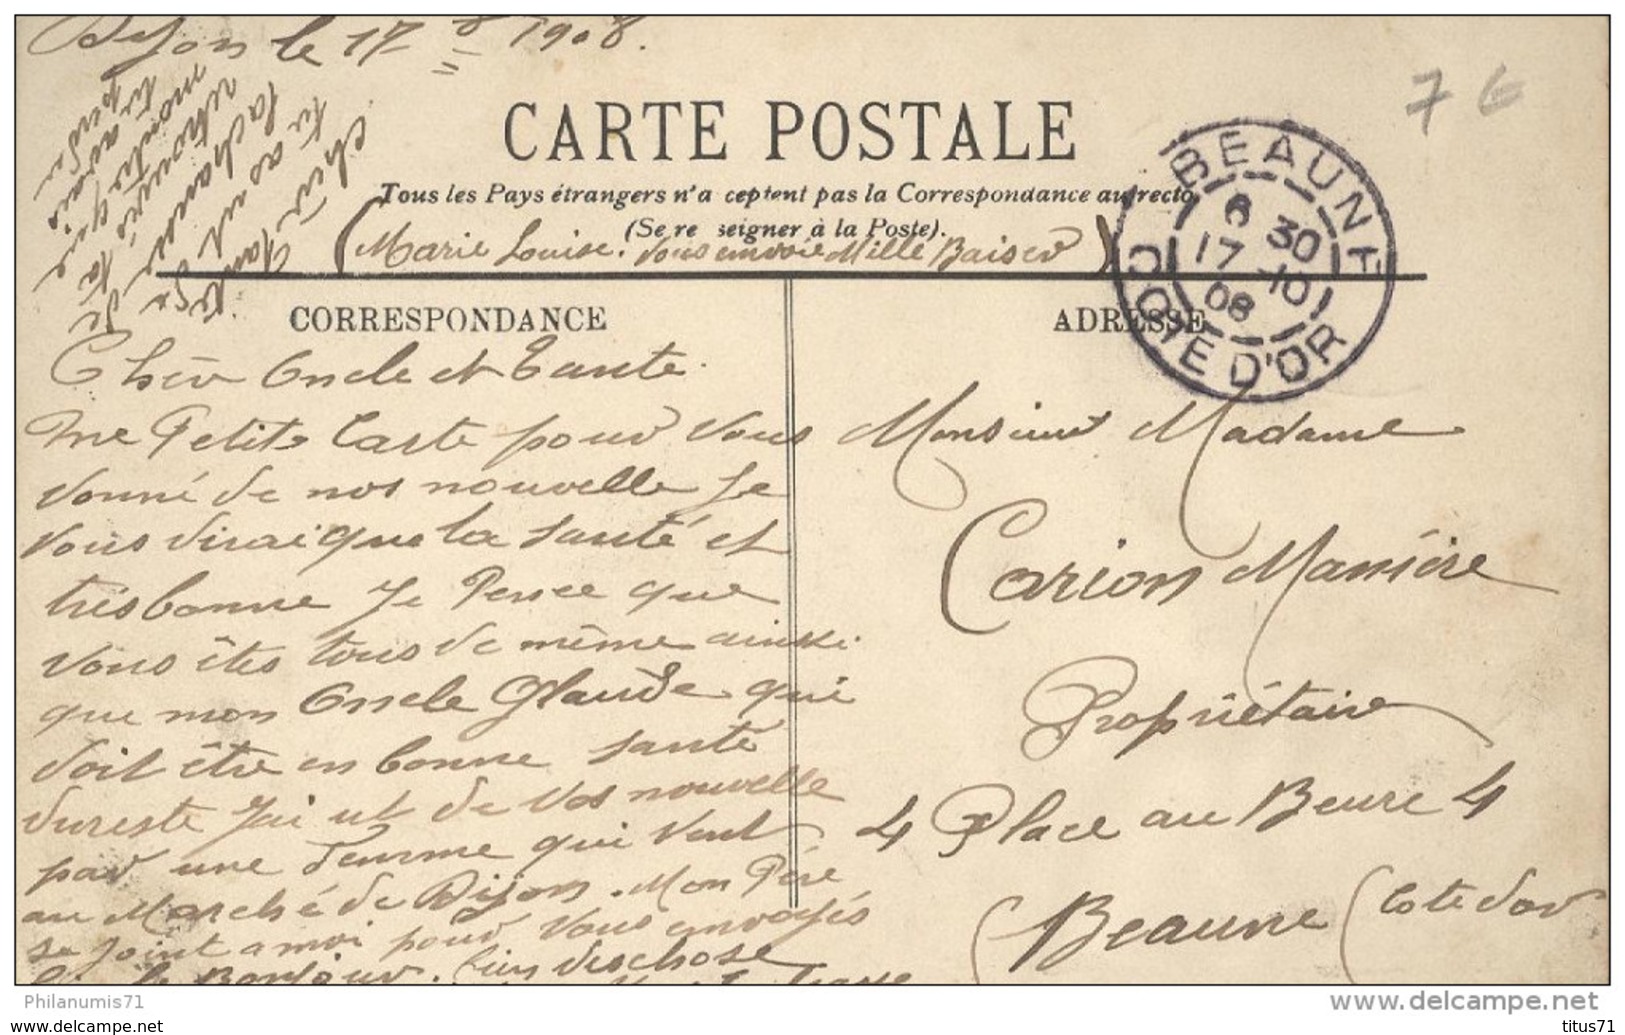 Dijon le 17 1908.
7 6
CARTE POSTALE
Tous les Pays étrangers n'a ceptent pas la Correspondance au recto
(Se re seigner à la Poste).
(Marie Louise. Vous envoie Mille Baiser)
BEAUNE
6 30
17 10
08
COTE D'OR
cher
tu as
la chance
retrouvé ta
montre
tu avais
perdu
CORRESPONDANCE
Cher Oncle et Tante.
Une Petite Carte pour Vous
donné de nos nouvelle Je
Vous dirai que la santé et
très bonne Je Pense que
Vous êtes tous de même ainsi
que mon Oncle Glaude qui
doit être en bonne santé
dureste J'ai ut de Vos nouvelle
par une femme qui vent
au Marché de Dijon. Mon Père
se joint a moi pour Vous envoyés
le Bonjour. bien des chose
ADRESSE
Monsieur Madame
Carion Manière
Propriétaire
4 Place au Beurre 4
Beaune (Cote d'or
Philanumis71
www.delcampe.net
www.delcampe.com
titus71